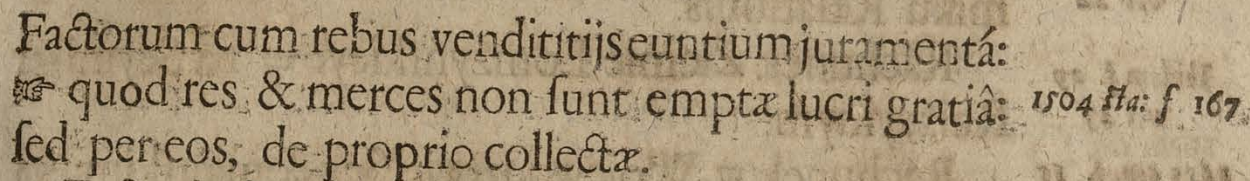 Factorum cum rebus vendititijs euntium juramentá:
☞ quod res & merces non ſunt emptæ lucri gratiâ: 1504 ſta: f 167.
ſed per eos, de proprio collectæ.